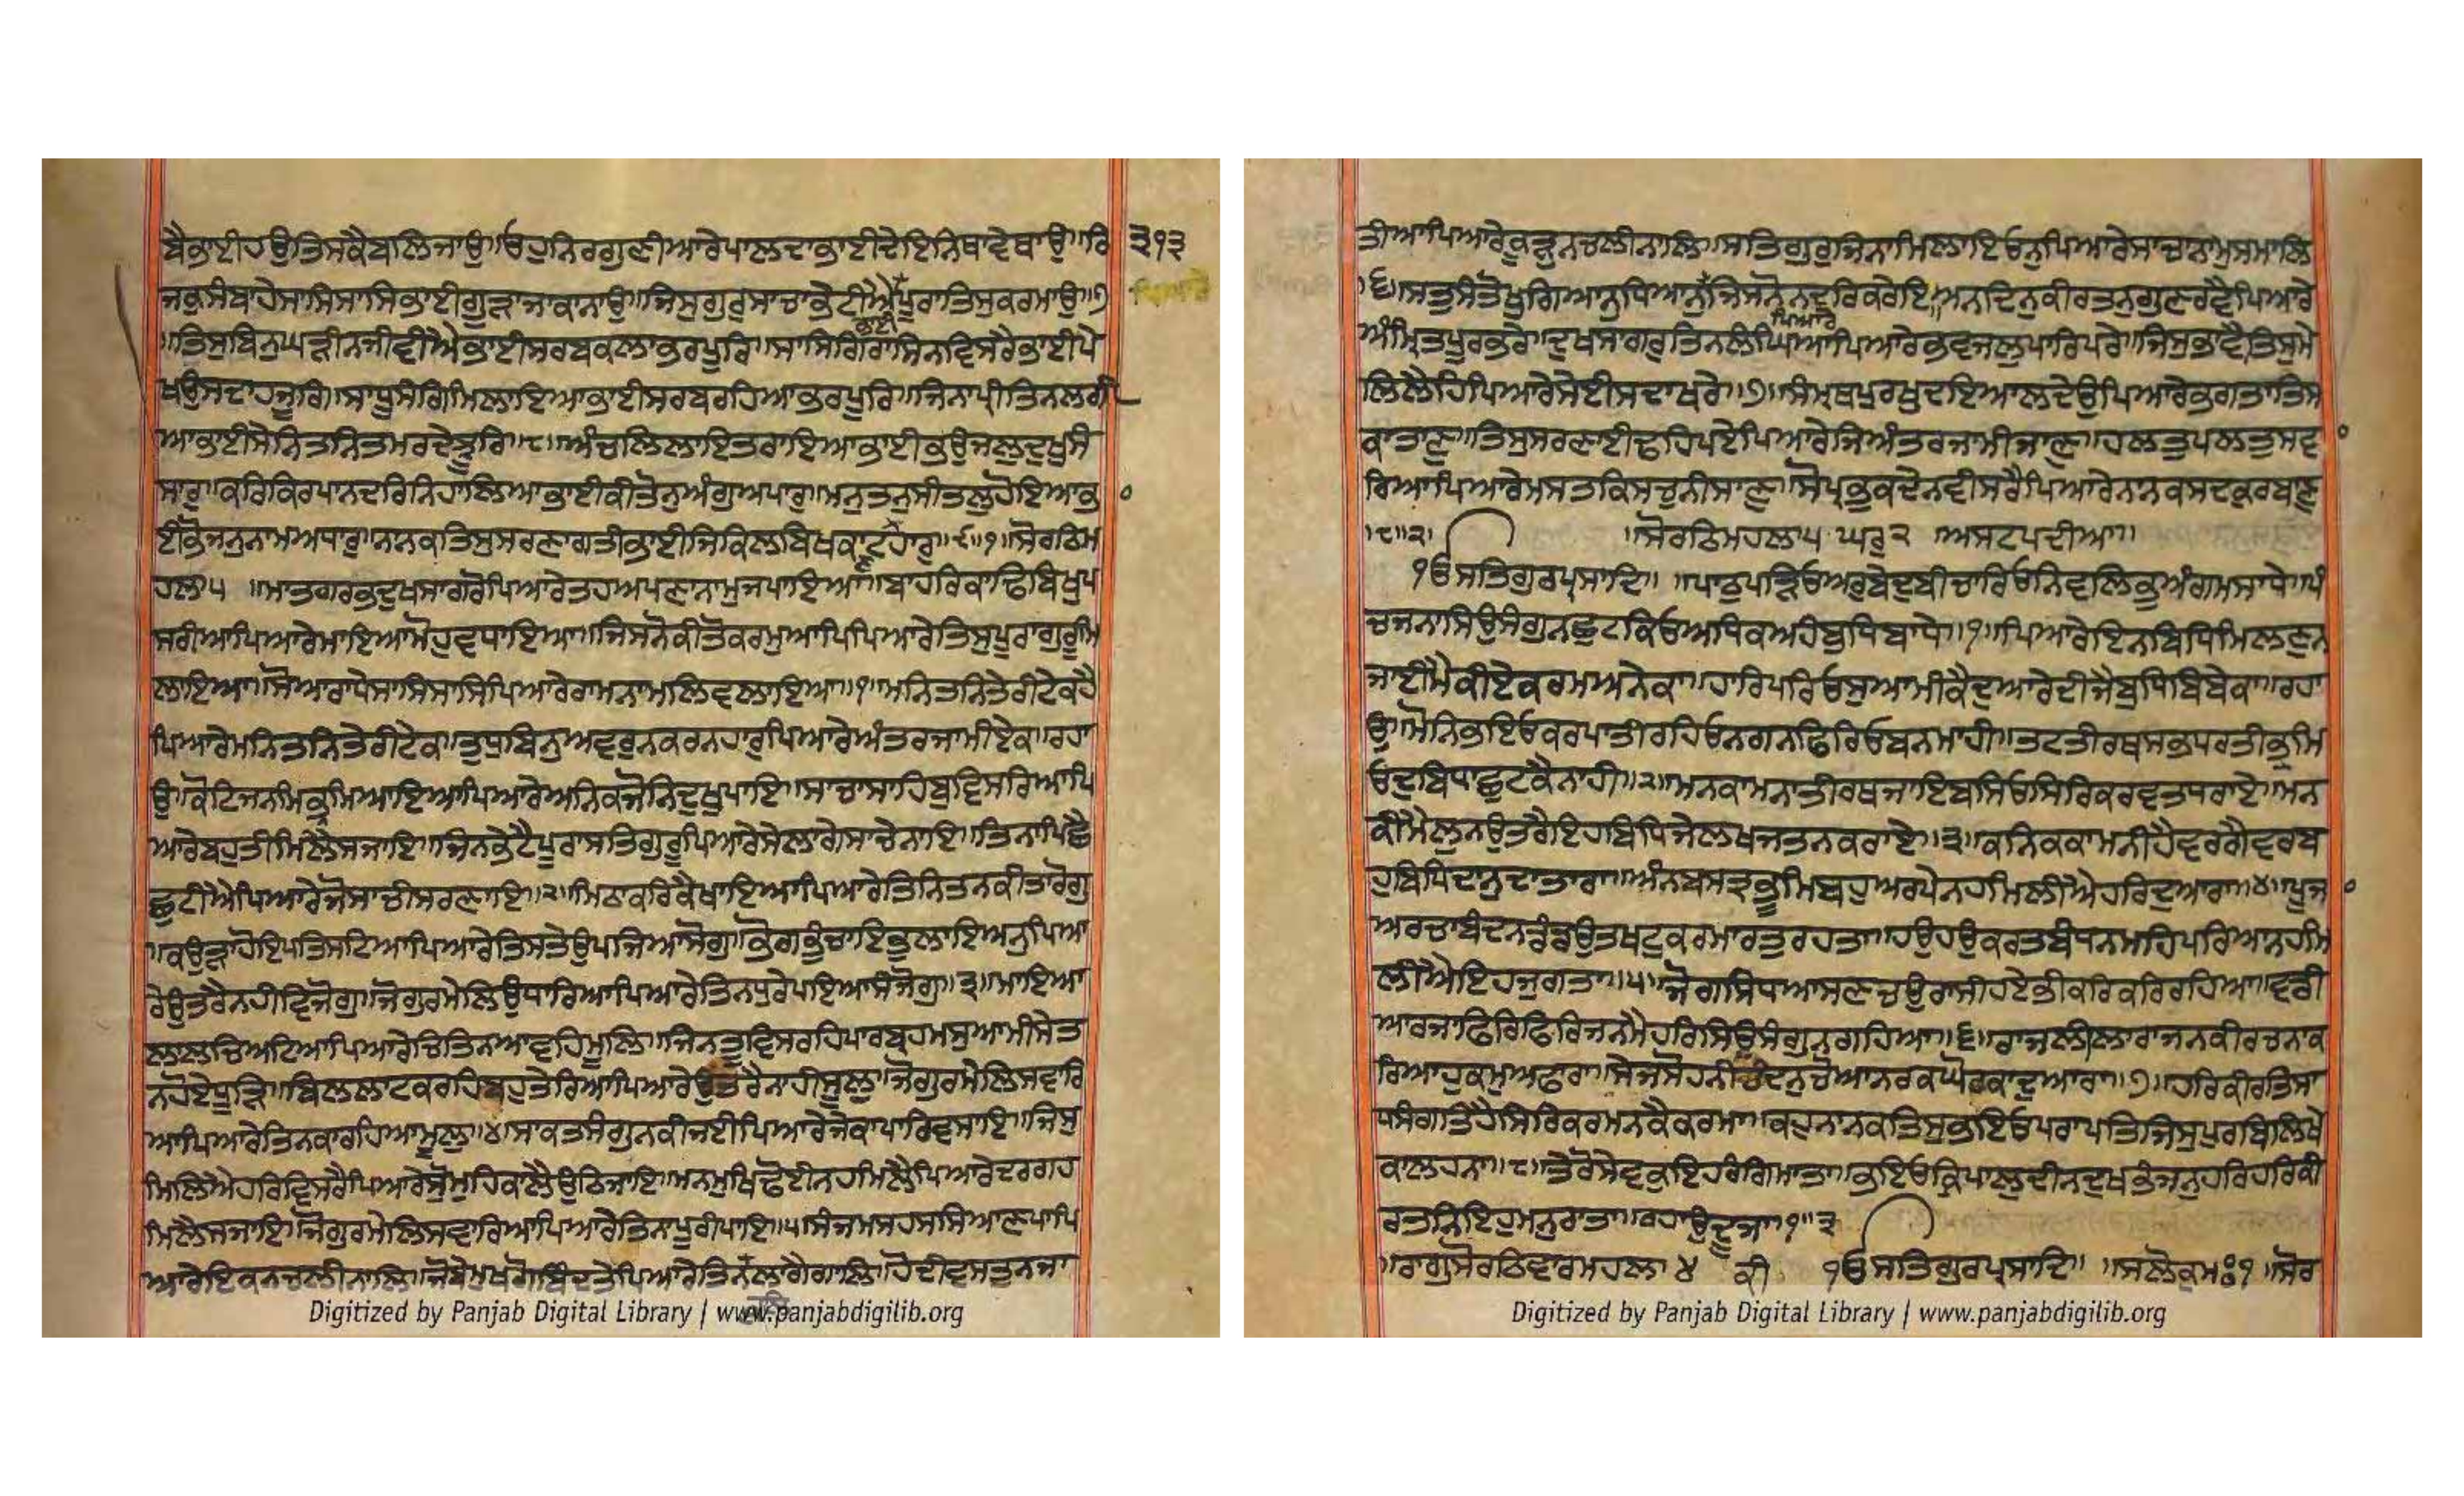 ਬੈਭਾਈਹਉਤਿਸਕੈਬਲਿਜਾਉ॥ਓਹੁਨਿਰਗੁਣੀਆਰੇਪਾਲਦਾਭਾਈਦੇਇਨਿਥਾਵੇਥਾਉ॥ਰਿ ੩੧੩
ਜਕੁਸੰਬਾਹੇਸਾਸਿਸਾਸਿਭਾਈਗੂੜਾਜਾਕਾਨਾਉ॥ਜਿਸੁਗੁਰੁਸਾਚਾਭੇਟੀਐਭਾਈਪੂਰਾਤਿਸੁਕਰਮਾਉ॥੭
॥ਤਿਸੁਬਿਨੁਘੜੀਨਜੀਵੀਐਭਾਈਸਰਬਕਲਾਭਰਪੂਰਿ॥ਸਾਸਿਗਿਰਾਸਿਨਵਿਸਰੈਭਾਈਪੇ
ਖਉਸਦਾਹਜੂਰਿ॥ਸਾਧੂਸੰਗਿਮਿਲਾਇਆਭਾਈਸਰਬਰਹਿਆਭਰਪੂਰਿ॥ਜਿਨਾਪ੍ਰੀਤਿਨਲਗੀ
ਆਭਾਈਸੇਨਿਤਨਿਤਮਰਦੇਝੂਰਿ॥੮॥ਅੰਚਲਿਲਾਇਤਰਾਇਆਭਾਈਭਉਜਲੁਦੁਖੁਸੰ
ਸਾਰੁ॥ਕਰਿਕਿਰਪਾਨਦਰਿਨਿਹਾਲਿਆਭਾਈਕੀਤੋਨੁਅੰਗੁਅਪਾਰੁ॥ਮਨੁਤਨੁਸੀਤਲੁਹੋਇਆਭਾ
ਈਭੋਜਨੁਨਾਮਅਧਾਰੁ॥ਨਾਨਕਤਿਸੁਸਰਣਾਗਤੀਭਾਈਜਿਕਿਲਬਿਖਕਾਟਣਹਾਰੁ॥੯॥੧॥ਸੋਰਠਿਮ
ਹਲਾ੫ ॥ਮਾਤਗਰਭਦੁਖਸਾਗਰੋਪਿਆਰੇਤਹਅਪਣਾਨਾਮੁਜਪਾਇਆ॥ਬਾਹਰਿਕਾਢਿਬਿਖੁਪ
ਸਰੀਆਪਿਆਰੇਮਾਇਆਮੋਹੁਵਧਾਇਆ॥ਜਿਸਨੋਕੀਤੋਕਰਮੁਆਪਿਪਿਆਰੇਤਿਸੁਪੂਰਾਗੁਰੂਮਿ
ਲਾਇਆ॥ਸੋਆਰਾਧੇਸਾਸਿਸਾਸਿਪਿਆਰੇਰਾਮਨਾਮਲਿਵਲਾਇਆ॥੧॥ਮਨਿਤਨਿਤੇਰੀਟੇਕਹੈ
ਪਿਆਰੇਮਨਿਤਨਿਤੇਰੀਟੇਕ॥ਤੁਧੁਬਿਨੁਅਵਰੁਨਕਰਨਹਾਰੁਪਿਆਰੇਅੰਤਰਜਾਮੀਏਕ॥ਰਹਾ
ਉ॥ਕੋਟਿਜਨਮਭ੍ਰਮਿਆਇਆਪਿਆਰੇਅਨਿਕਜੋਨਿਦੁਖੁਪਾਇ॥ਸਾਚਾਸਾਹਿਬੁਵਿਸਰਿਆਪਿ
ਆਰੇਬਹੁਤੀਮਿਲੈਸਜਾਇ॥ਜਿਨਭੇਟੈਪੂਰਾਸਤਿਗੁਰੂਪਿਆਰੇਸੇਲਾਗੇਸਾਚੇਨਾਇ॥ਤਿਨਾਪਿਛੈ
ਛੁਟੀਐਪਿਆਰੇਜੋਸਾਚੀਸਰਣਾਇ॥੨॥ਮਿਠਾਕਰਿਕੈਖਾਇਆਪਿਆਰੇਤਿਨਿਤਨਕੀਤਾਰੋਗੁ
॥ਕਉੜਾਹੋਇਪਤਿਸਟਿਆਪਿਆਰੇਤਿਸਤੇਉਪਜਿਆਸੋਗੁ॥ਭੋਗਭੁੰਚਾਇਭੁਲਾਇਅਨੁਪਿਆ
ਰੇਉਤਰੈਨਹੀਵਿਜੋਗੁ॥ਜੋਗੁਰਮੇਲਿਉਧਾਰਿਆਪਿਆਰੇਤਿਨਧੁਰੇਪਇਆਸੰਜੋਗੁ॥੩॥ਮਾਇਆ
ਲਾਲਚਿਅਟਿਆਪਿਆਰੇਚਿਤਿਨਆਵਹਿਮੂਲਿ॥ਜਿਨਤੂਵਿਸਰਹਿਪਾਰਬ੍ਰਹਮਸੁਆਮੀਸੇਤ
ਨਹੋਏਧੂੜਿ॥ਬਿਲਲਾਟਕਰਹਿਬਹੁਤੇਰਿਆਪਿਆਰੇਉਤਰੈਨਾਹੀਸੂਲੁ॥ਜੋਗੁਰਮੇਲਿਸਵਾਰਿ
ਆਪਿਆਰੇਤਿਨਕਾਰਹਿਆਮੂਲੁ॥੪॥ਸਾਕਤਸੰਗੁਨਕੀਜਈਪਿਆਰੇਜੇਕਾਪਾਰਿਵਸਾਇ॥ਜਿਸੁ
ਮਿਲਿਐਹਰਿਵਿਸਰੈਪਿਆਰੇਸੋੁਮੁਹਿਕਾਲੈਉਠਿਜਾਇ॥ਮਨਮੁਖਿਢੋਈਨਹਮਿਲੈਪਿਆਰੇਦਰਗਹ
ਮਿਲੈਸਜਾਇ॥ਜੋਗੁਰਮੇਲਿਸਵਾਰਿਆਪਿਆਰੇਤਿਨਾਪੂਰੀਪਾਇ॥੫॥ਸੰਜਮਸਹਸਸਿਆਣਪਾਪਿ
ਆਰੇਇਕਨਚਲੀਨਾਲਿ॥ਜੋਬੇਮੁਖਗੋਬਿੰਦਤੇਪਿਆਰੇਤਿਨਕੁਲਿਲਾਗੈਗਾਲਿ॥ਹੋਦੀਵਸਤੁਨਜਾ
Digitized by Panjab Digital Library | www.panjabdigilib.org
ਤੀਆਪਿਆਰੇਕੂੜੁਨਚਲੀਨਾਲਿ॥ਸਤਿਗੁਰੁਜਿਨਾਮਿਲਾਇਓਨੁਪਿਆਰੇਸਾਚਾਨਾਮੁਸਮਾਲਿ
॥੬॥ਸਤੁਸੰਤੋਖੁਗਿਆਨੁਧਿਆਨੁਪਿਆਰੇਜਿਸਨੋਨਦਰਿਕਰੇਇ॥ਅਨਦਿਨੁਕੀਰਤਨੁਗੁਣਰਵੈਪਿਆਰੇ
ਅੰਮ੍ਰਿਤਪੂਰਭਰੇ॥ਦੁਖਸਾਗਰੁਤਿਨਲੰਘਿਆਪਿਆਰੇਭਵਜਲੁਪਾਰਿਪਰੇ॥ਜਿਸੁਭਾਵੈਤਿਸੁਮੇ
ਲਿਲੈਹਿਪਿਆਰੇਸੇਈਸਦਾਖਰੇ॥੭॥ਸੰਮ੍ਰਥਪੁਰਖੁਦਇਆਲਦੇਉਪਿਆਰੇਭਗਤਾਤਿਸ
ਕਾਤਾਣੁ॥ਤਿਸੁਸਰਣਾਈਢਹਿਪਏਪਿਆਰੇਜਿਅੰਤਰਜਾਮੀਜਾਣੁ॥ਹਲਤੁਪਲਤੁਸਵਾ
ਰਿਆਪਿਆਰੇਮਸਤਕਿਸਚੁਨੀਸਾਣੁ॥ਸੋਪ੍ਰਭੁਕਦੇਨਵੀਸਰੈਪਿਆਰੇਨਾਨਕਸਦਕੁਰਬਾਣੁ
॥੮॥੨॥ ॥ਸੋਰਠਿਮਹਲਾ੫ ਘਰੁ੨ ਅਸਟਪਦੀਆ॥
੧ੳਸਤਿਗੁਰਪ੍ਰਸਾਦਿ॥ ॥ਪਾਠੁਪੜਿਓਅਰੁਬੇਦੁਬੀਚਾਰਿਓਨਿਵਲਿਭੂਅੰਗਮਸਾਧੇ॥ਪੰ
ਚਜਨਾਸਿਉਸੰਗੁਨਛੁਟਕਿਓਅਧਿਕਅਹੰਬੁਧਿਬਾਧੇ॥੧॥ਪਿਆਰੇਇਨਬਿਧਿਮਿਲਣੁਨ
ਜਾਈਮੈਕੀਏਕਰਮਅਨੇਕਾ॥ਹਾਰਿਪਰਿਓਸੁਆਮੀਕੈਦੁਆਰੇਦੀਜੈਬੁਧਿਬਿਬੇਕਾ॥ਰਹਾ
ਉ॥ਮੋਨਿਭਇਓਕਰਪਾਤੀਰਹਿਓਨਗਨਫਿਰਿਓਬਨਮਾਹੀ॥ਤਟਤੀਰਥਸਭਧਰਤੀਭ੍ਰਮਿ
ਓਦੁਬਿਧਾਛੁਟਕੈਨਾਹੀ॥੨॥ਮਨਕਾਮਨਾਤੀਰਥਜਾਇਬਸਿਓਸਿਰਿਕਰਵਤਧਰਾਏ॥ਮਨ
ਕੀਮੈਲੁਨਉਤਰੈਇਹਬਿਧਿਜੇਲਖਜਤਨਕਰਾਏ॥੩॥ਕਨਿਕਕਾਮਨੀਹੈਵਰਗੈਵਰਬ
ਹੁਬਿਧਿਦਾਨੁਦਾਤਾਰਾ॥ਅੰਨਬਸਤ੍ਰਭੂਮਿਬਹੁਅਰਪੇਨਹਮਿਲੀਐਹਰਿਦੁਆਰਾ॥੪॥ਪੂਜਾ
ਅਰਚਾਬੰਦਨਡੰਡਉਤਖਟੁਕਰਮਾਰਤੁਰਹਤਾ॥ਹਉਹਉਕਰਤਬੰਧਨਮਹਿਪਰਿਆਨਹਮਿ
ਲੀਐਇਹਜੁਗਤਾ॥੫॥ਜੋਗਸਿਧਆਸਣਚਉਰਾਸੀਹਏਭੀਕਰਿਕਰਿਰਹਿਆ॥ਵਡੀ
ਆਰਜਾਫਿਰਿਫਿਰਿਜਨਮੈਹਰਿਸਿਉਸੰਗੁਨਗਹਿਆ॥੬॥ਰਾਜਲੀਲਾਰਾਜਨਕੀਰਚਨਾਕ
ਰਿਆਹੁਕਮੁਅਫਾਰਾ॥ਸੇਜਸੋਹਨੀਚੰਦਨੁਚੋਆਨਰਕਘੋਰਕਾਦੁਆਰਾ॥੭॥ਹਰਿਕੀਰਤਿਸਾ
ਧਸੰਗਤਿਹੈਸਿਰਿਕਰਮਨਕੈਕਰਮਾ॥ਕਹੁਨਾਨਕਤਿਸੁਭਇਓਪਰਾਪਤਿਜਿਸੁਪੁਰਬਿਲਿਖੇ
ਕਾਲਹਨਾ॥੮॥ਤੇਰੋਸੇਵਕੁਇਹਰੰਗਿਮਾਤਾ॥ਭਇਓਕ੍ਰਿਪਾਲੁਦੀਨਦੁਖਭੰਜਨੁਹਰਿਹਰਿਕੀ
ਰਤਨਿਇਹੁਮਨੁਰਾਤਾ॥ਰਹਾਉਦੂਜਾ॥੧॥੩
॥ਰਾਗੁਸੋਰਠਿਵਾਰਮਹਲਾ ੪ ਕੀ ੧ੳਸਤਿਗੁਰਪ੍ਰਸਾਦਿ॥ ॥ਸਲੋਕੁਮਃ੧ ॥ਸੋਰ
Digitized by Panjab Digital Library | www.panjabdigilib.org